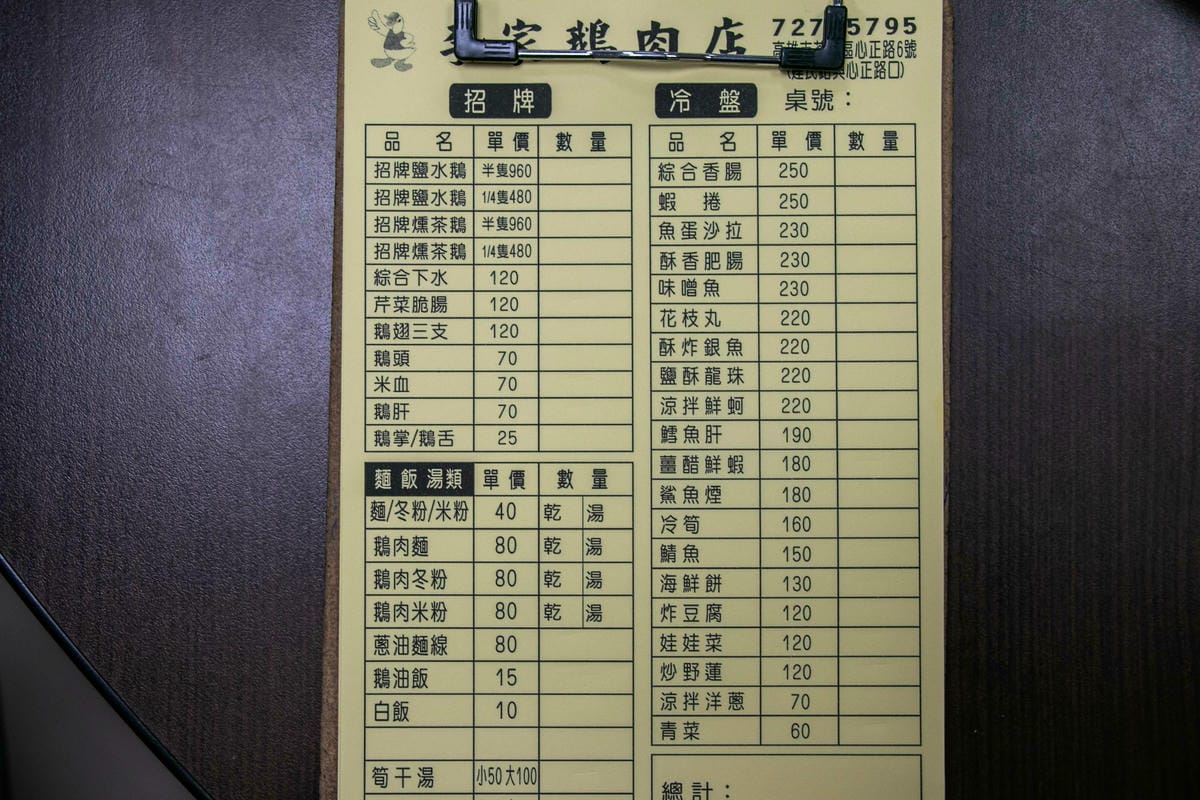 家鵝肉店
727 5795
高雄市 區心正路6號
心正路口)
招牌
品名 單價 數量
招牌鹽水鵝 半隻960
招牌鹽水鵝 1/4隻480
招牌燻茶鵝 半隻960
招牌燻茶鵝 1/4隻480
綜合下水 120
芹菜脆腸 120
鵝翅三支 120
鵝頭 70
米血 70
鵝肝 70
鵝掌/鵝舌 25
麵飯湯類 單價 數量
麵/冬粉/米粉 40 乾 湯
鵝肉麵 80 乾 湯
鵝肉冬粉 80 乾 湯
鵝肉米粉 80 乾 湯
蔥油麵線 80
鵝油飯 15
白飯 10
筍干湯 小50大100
冷盤 桌號：
品名 單價 數量
綜合香腸 250
蝦捲 250
魚蛋沙拉 230
酥香肥腸 230
味噌魚 230
花枝丸 220
酥炸銀魚 220
鹽酥龍珠 220
涼拌鮮蚵 220
鱈魚肝 190
薑醋鮮蝦 180
鯊魚煙 180
冷筍 160
鯖魚 150
海鮮餅 130
炸豆腐 120
娃娃菜 120
炒野蓮 120
涼拌洋蔥 70
青菜 60
總計：